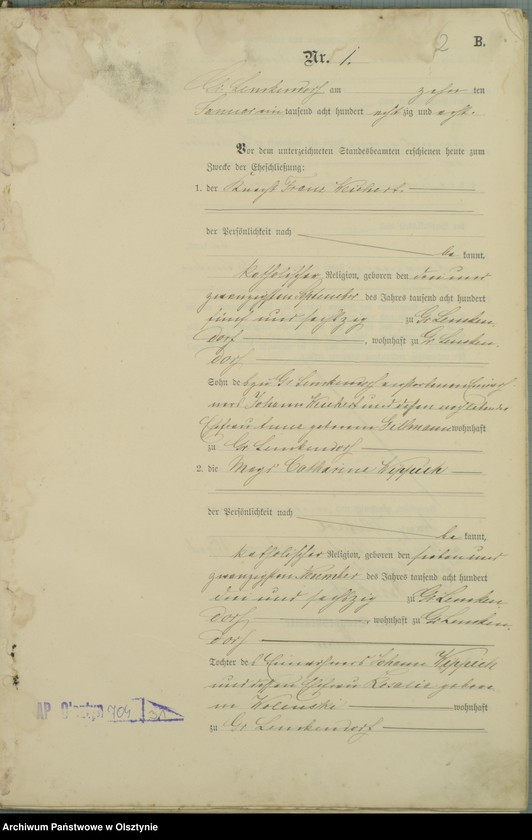 2 B.
Nr. 1.
Gr. Lemkendorf am zehn ten
Januar ein tausend acht hundert acht zig und acht.
Vor dem unterzeichneten Standesbeamten erschienen heute zum
Zwecke der Eheschließung:
1. der Knecht Franz
der Persönlichkeit nach
be kannt,
katholischer Religion, geboren den drei und
zwanzigsten September des Jahres tausend acht hundert
fünf und sechzig zu Gr. Lemken-
dorf, wohnhaft zu Gr. Lemken-
dorf
Sohn des zu Gr. Lemkendorf verstorbenen
Johann und dessen noch lebender
Ehefrau Anna geborenen wohnhaft
zu Gr. Lemkendorf
2. die Magd Catharina Wippich
der Persönlichkeit nach
be kannt,
katholischer Religion, geboren den sieben und
zwanzigsten November des Jahres tausend acht hundert
drei und sechzig zu Gr. Lemken-
dorf, wohnhaft zu Gr. Lemken-
dorf
Tochter des Einwohners Johann Wippich
und dessen Ehefrau Rosalie gebore-
nen Wolinski wohnhaft
zu Gr. Lemkendorf
AP Olsztyn 709
Archiwum Państwowe w Olsztynie